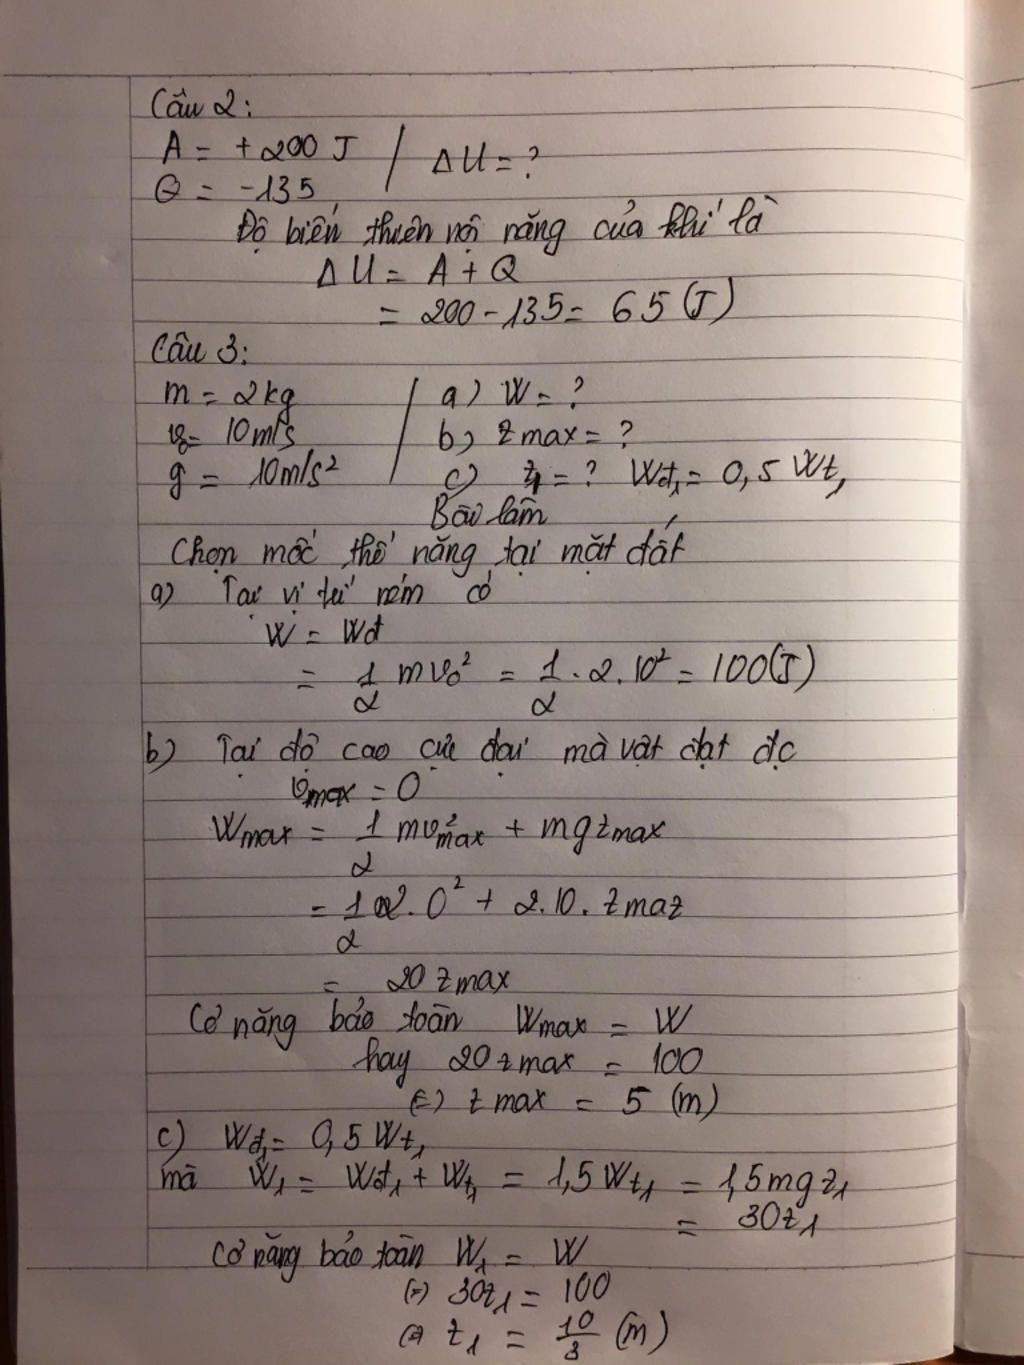 Câu 2:
A = +200 J / ΔU = ?
Q = -135
Độ biến thiên nội năng của khí là
ΔU = A + Q
= 200 - 135 = 65 (J)
Câu 3:
m = 2kg / a) W = ?
v₀ = 10m/s b) zmax = ?
g = 10m/s² c) z₁ = ? Wđ₁ = 0,5 Wt₁
Bài làm
Chọn mốc thế năng tại mặt đất
a) Tại vị trí ném có
W = Wđ
= 1/2 mv₀² = 1/2 . 2. 10² = 100(J)
b) Tại độ cao cực đại mà vật đạt đc
vmax = 0
Wmax = 1/2 mv²max + mgzmax
= 1/2 .2. 0² + 2.10. zmaz
= 20 zmax
Cơ năng bảo toàn Wmax = W
hay 20 zmax = 100
(=) zmax = 5 (m)
c) Wđ₁ = 0,5 Wt₁
mà W₁ = Wđ₁ + Wt₁ = 1,5 Wt₁ = 1,5mgz₁
= 30z₁
Cơ năng bảo toàn W₁ = W
(=) 30z₁ = 100
(=) z₁ = 10/3 (m)